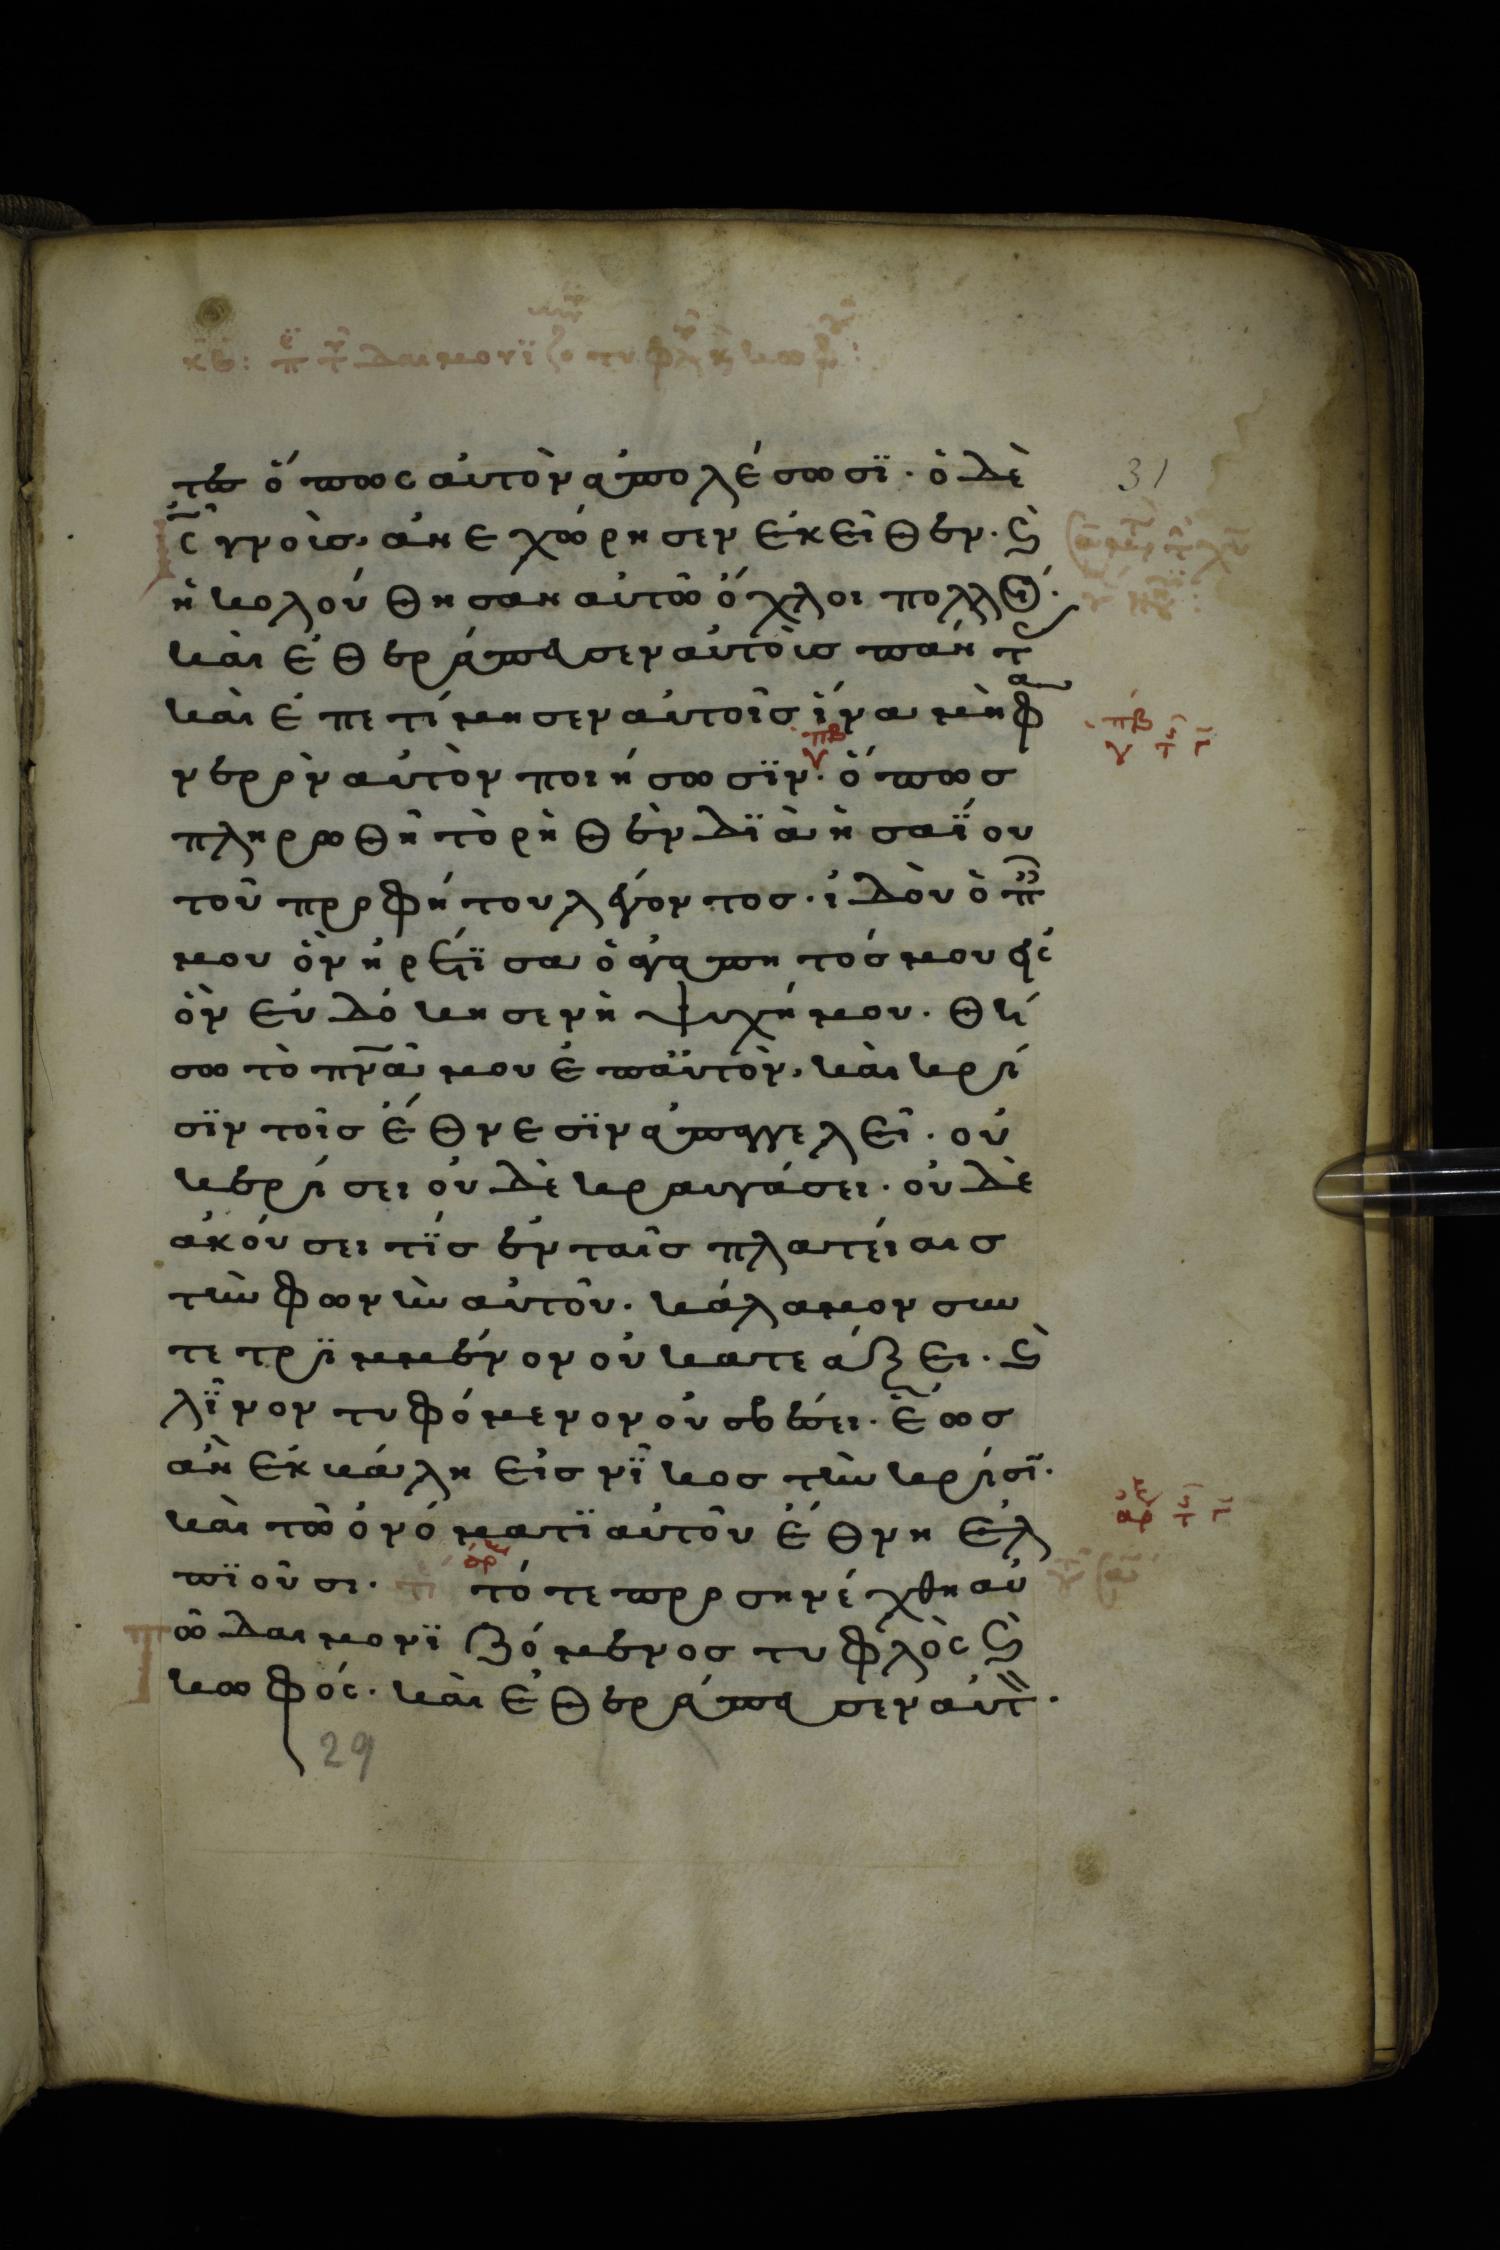 κβ: π τ δαιμονϊζο τυφλ κ κωφ:
τοῦ ὅπως αὐτὸν ἀπολέσωσϊ· ὁ δὲ
31
ι̅ς̅ γνοὺσ, ἀνεχώρησεν ἐκεῖθεν· κ̀
ἠκολούθησαν αὐτῶ ὄχλοι πολλοί·
καὶ ἐθεράπευσεν αὐτοὺσ πάντ
ασ
καὶ ἐπετίμησεν αὐτοῖσ ἵνα μὴ φα
πβ γ
νερὸν αὐτὸν ποιήσωσϊν· ὅπωσ
πληρωθῆ τὸ ρηθὲν δϊὰ ἠσαΐου
τοῦ προφήτου λέγοντοσ· ἰδοὺ ὁ π̅
μου ὃν ἡρέτϊσα ὁ ἀγαπητόσ μου εἰσ
ὃν εὐδόκησεν ἡ ψυχή μου· θή
σω τὸ π̅ν̅α̅ μου ἐπ' αὐτὸν, καὶ κρί
σϊν τοῖσ ἔθνεσϊν ἀπαγγελεῖ· οὐ
κ ἐρίσει οὐδὲ κραυγάσει· οὐδὲ
ἀκούσει τϊσ ἐν ταῖσ πλατείαισ
τὴν φωνὴν αὐτοῦ· κάλαμον συν
τετριμμένον οὐ κατεάξει· κ̀
λῖνον τυφόμενον οὐ σβέσει· ἕωσ
ἂν ἐκβάλη εἰσ νῖκοσ τὴν κρίσϊ̅·
καὶ τῶ ὀνόματϊ αὐτοῦ ἔθνη ἐλ
πϊοῦσι· τότε προσηνέχθη αὐ
τῶ δαιμονϊζόμενοσ τυφλὸς κ̀
κωφός· καὶ ἐθεράπευσεν αὐτ̀·
29